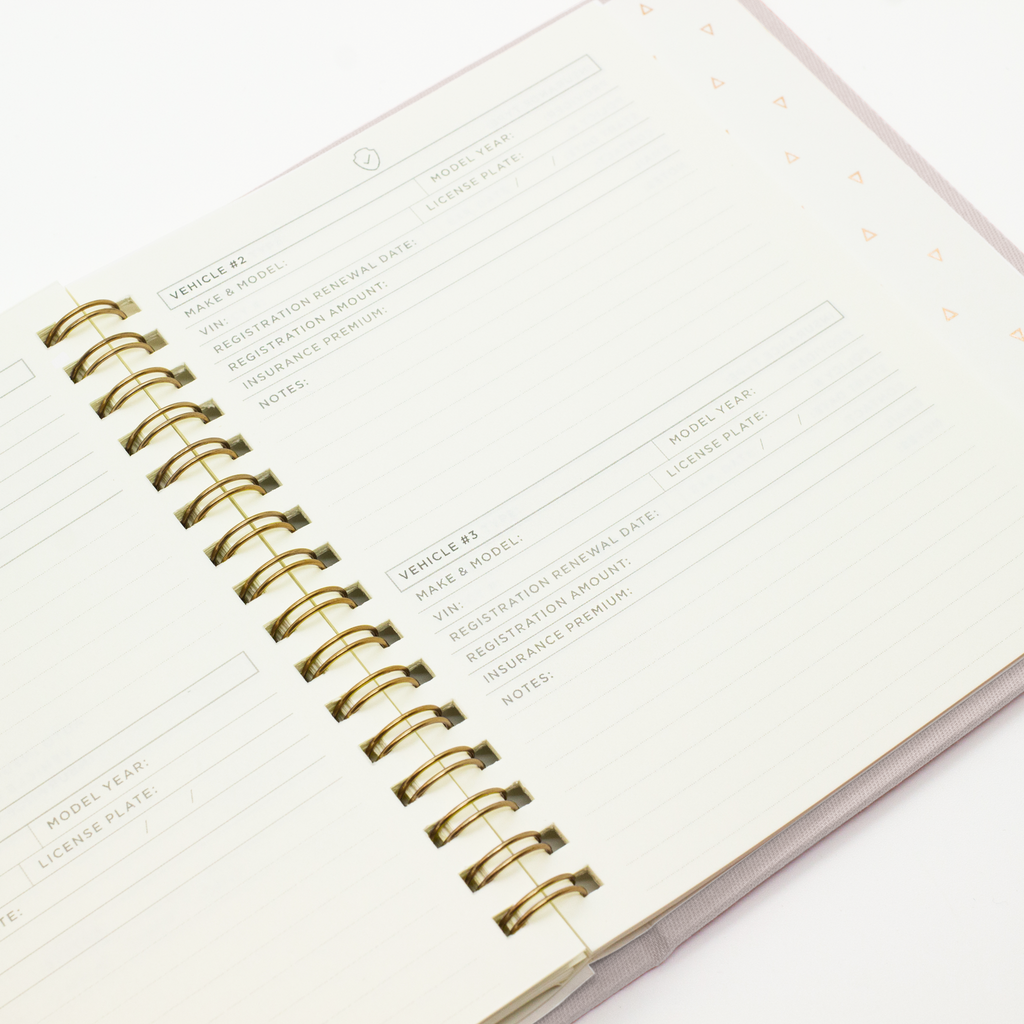 MODEL YEAR:
LICENSE PLATE: / /
VEHICLE #2
MAKE & MODEL: MODEL YEAR:
VIN: LICENSE PLATE:
REGISTRATION RENEWAL DATE: / /
REGISTRATION AMOUNT:
INSURANCE PREMIUM:
NOTES:
VEHICLE #3
MAKE & MODEL: MODEL YEAR:
VIN: LICENSE PLATE:
REGISTRATION RENEWAL DATE: / /
REGISTRATION AMOUNT:
INSURANCE PREMIUM:
NOTES: